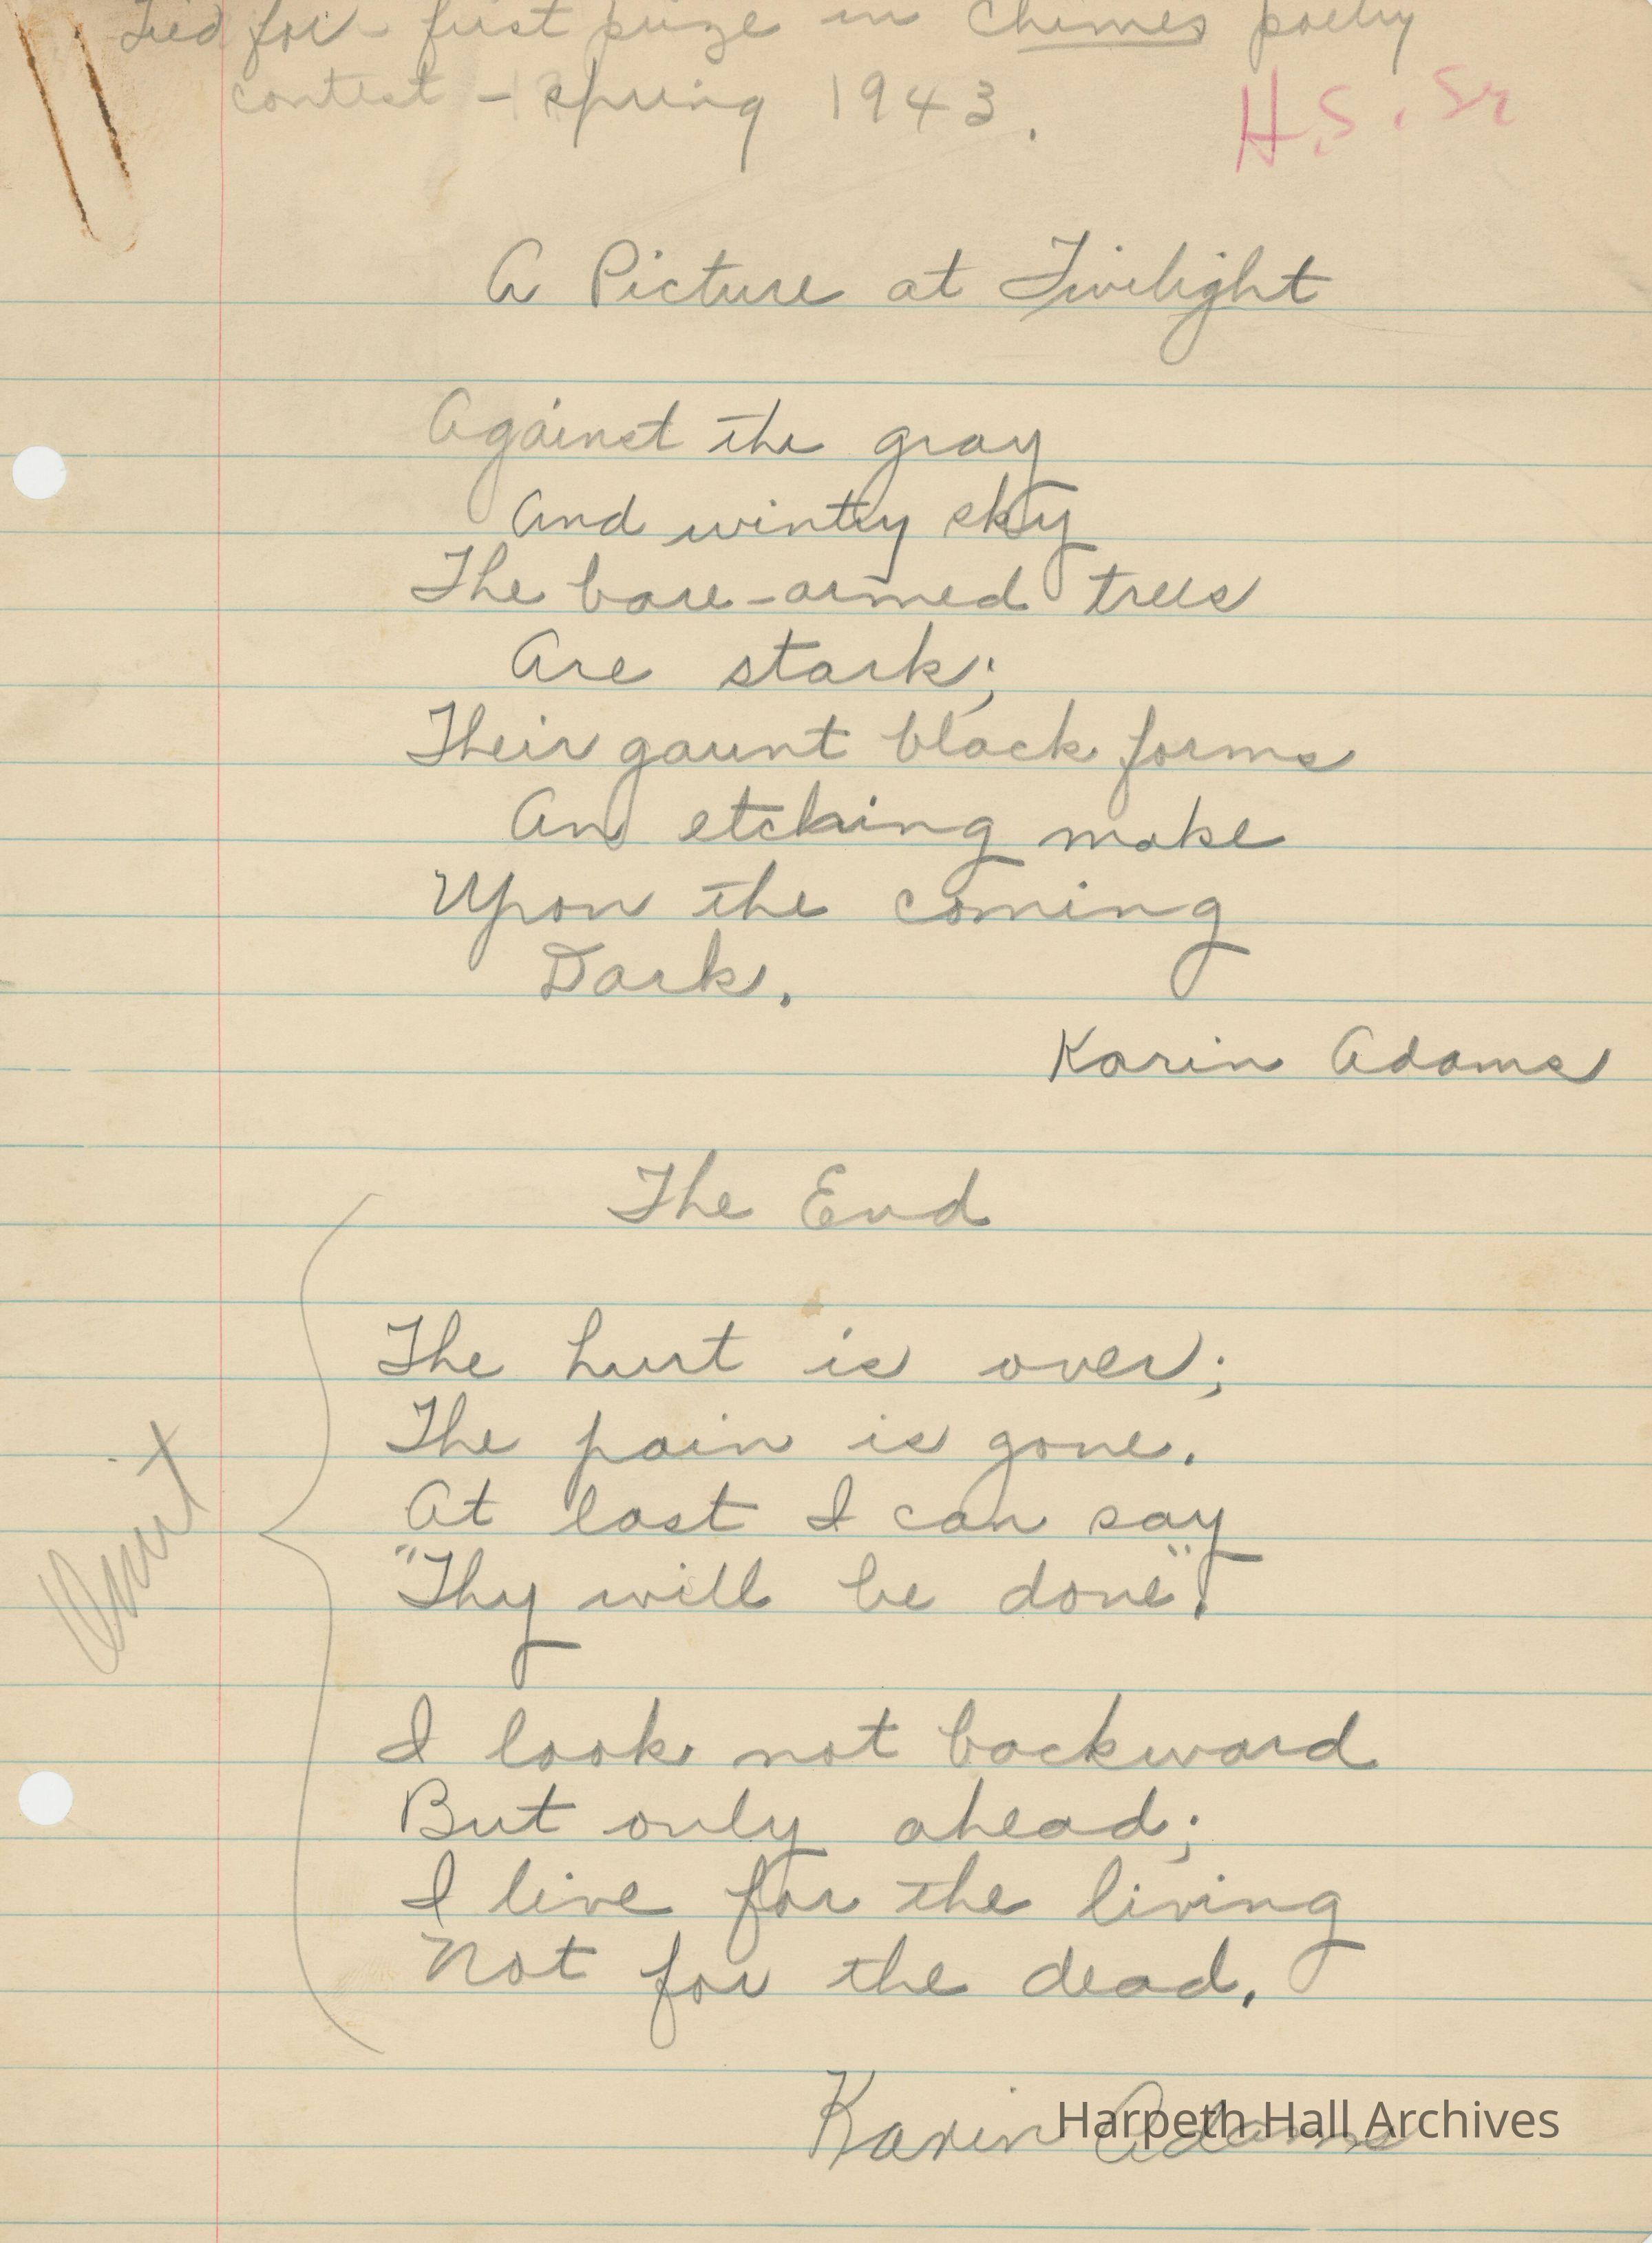 Tied for first prize in Chimes poetry
contest - Spring 1943.
H.S. Sr
A Picture at Twilight
Against the gray
And wintry sky
The bare-armed trees
Are stark;
Their gaunt black forms
An etching make
Upon the coming
Dark.
Karin Adams
The End
The hurt is over;
The pain is gone.
At last I can say
"Thy will be done".
Omit
I look not backward
But only ahead;
I live for the living
Not for the dead.
Karin Adams
Harpeth Hall Archives